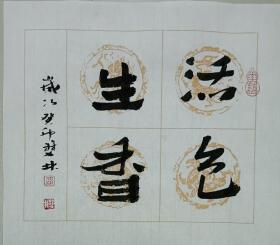 活色
生香
岁次癸卯